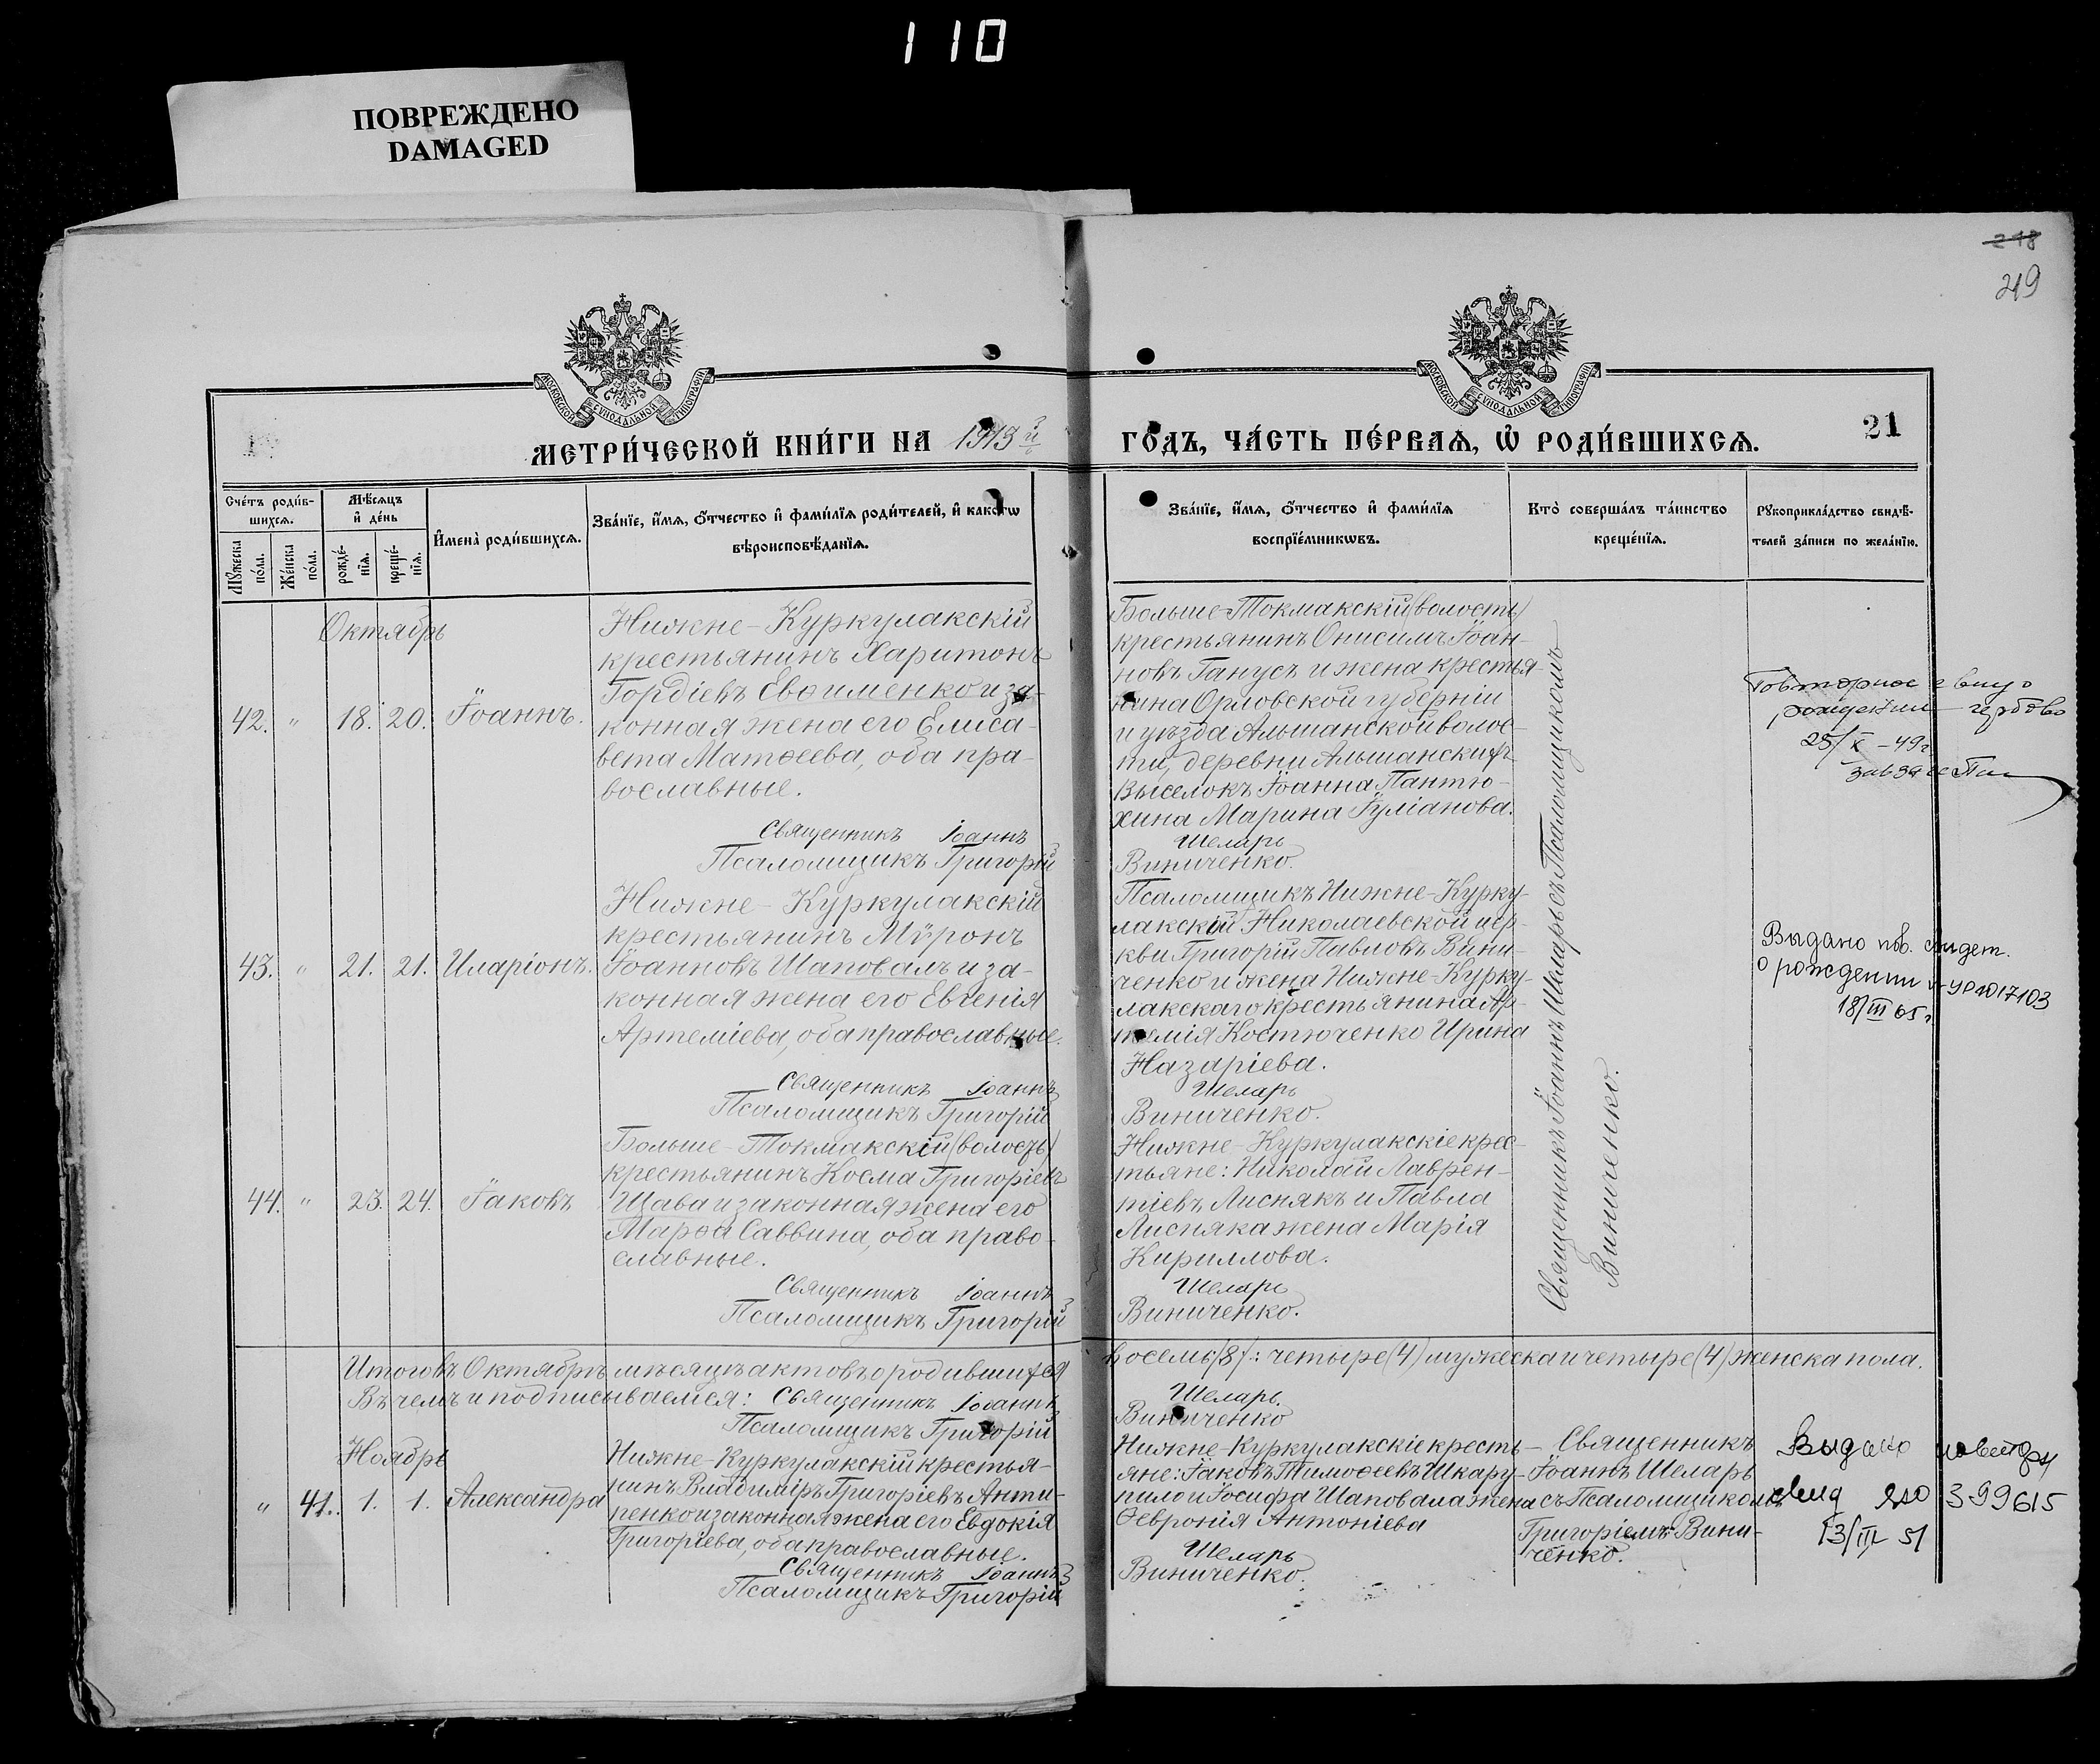 110
ПОВРЕЖДЕНО
DAMAGED
218
219
МОСКОВСКОЙ СѴНОДАЛЬНОЙ ТИПОГРАФІИ
МОСКОВСКОЙ СѴНОДАЛЬНОЙ ТИПОГРАФІИ
МЕТРИ́ЧЕСКОЙ КНИ́ГИ НА 1913й
ГО́ДЪ, ЧА́СТЬ ПЕ́РВАѦ, Ѽ РОДИ́ВШИХСѦ.
21
Сче́тъ роди́в-
шихсѧ.
Мꙋ́жеска
по́ла.
Же́нска
по́ла.
Мѣ́сѧцъ
и҆ де́нь
рожде́-
нїѧ.
креще́-
нїѧ.
И҆мена̀ роди́вшихсѧ.
Зва́нїе, и҆́мѧ, ѻ҆́тчество и҆ фами́лїѧ роди́телей, и҆ како́гѡ
вѣроисповѣ́данїѧ.
Зва́нїе, и҆́мѧ, ѻ҆́тчество и҆ фами́лїѧ
воспрїе́мникѡвъ.
Кто̀ соверша́лъ та́инство
креще́нїѧ.
Рꙋкоприкла́дство свидѣ́-
телей за́писи по жела́нїю.
Октябрь
42. " 18. 20. Іоаннъ.
Нижне-Куркулакскій
крестьянинъ Харитонъ
Гордіевъ Евоименко и за-
конная жена его Елиса-
вета Матѳеева, оба пра-
вославные.
Священникъ Іоаннъ
Псаломщикъ Григорій
Больше-Токмакскій (волость)
крестьянинъ Онисимъ Іоан-
новъ Ганусъ и жена крестья-
нина Орловской губерніи
и уѣзда Альшанской волос-
ти, деревни Альшанскихъ
Выселокъ Іоанна Пантю-
хина Марина Іуліанова.
Шеларь
Виниченко.
Священникъ Іоаннъ Шеларь съ Псаломщикомъ
Виниченко.
Повторное
25/X - 49г
43. " 21. 21. Иларіонъ.
Нижне-Куркулакскій
крестьянинъ Мѵронъ
Іоанновъ Шаповалъ и за-
конная жена его Евгенія
Артеміева, оба православные.
Священникъ Іоаннъ
Псаломщикъ Григорій
Псаломщикъ Нижне-Курку-
лакской Николаевской цер-
кви Григорій Павловъ Вини-
ченко и жена Нижне-Курку-
лакскаго крестьянина Ар-
темія Костюченко Ирина
Назаріева.
Шеларь
Виниченко.
Выдано пов. свидет.
о рождении 1017103
18/III 65г
44. " 23. 24. Іаковъ
Больше-Токмакскій (волость)
крестьянинъ Косма Григоріевъ
Щава и законная жена его
Марѳа Саввина, оба право-
славные.
Священникъ Іоаннъ
Псаломщикъ Григорій
Нижне-Куркулакскіе крес-
тьяне: Николай Лаврен-
тіевъ Лиснякъ и Павла
Лисняка жена Марія
Кириллова.
Шеларь
Виниченко.
Итого въ Октябрѣ мѣсяцѣ актовъ о родившихся
восемь (8): четыре (4) мужеска и четыре (4) женска пола.
Въ чемъ и подписываемся: Священникъ Іоаннъ
Шеларь.
Псаломщикъ Григорій
Виниченко
Ноябрь
" 41. 1. 1. Александра
Нижне-Куркулакскій крестья-
нинъ Владиміръ Григоріевъ Анти-
пенко и законная жена его Евдокія
Григоріева, оба православные.
Священникъ Іоаннъ
Псаломщикъ Григорій
Нижне-Куркулакскіе кресть-
яне: Іаковъ Тимоѳеевъ Шкару-
пило и Іосифа Шаповала жена
Ѳевронія Антоніева
Шеларь
Виниченко.
Священникъ
Іоаннъ Шеларь
съ Псаломщикомъ
Григоріемъ Вини-
ченко.
Выдано
свид 399615
13/III 51